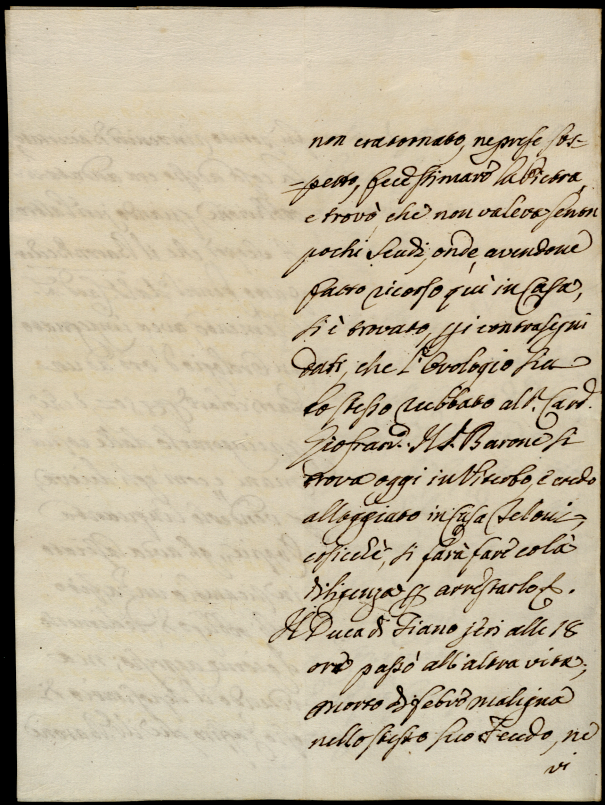 non era tornato, ne prese sos-
-petto, fece stimare la Pietra,
e trovò che non valeva se non
pochi scudi, onde, avendone
fatto ricorso quì in Casa,
si è trovato, p i contrasegni
dati, che l'Orologio sia
lo stesso rubbato al S. Card.
Giofrand. Il S. Barone si
trova oggi in Viterbo, e credo
alloggiato in Casa Zeloni,
cosicchè, si farà fare colà
diligenza p arrestarlo.
Il Duca di Fiano jeri alle 18
ore passò all'altra vita,
morto di febre maligna
nello stesso suo Feudo, ne
vi